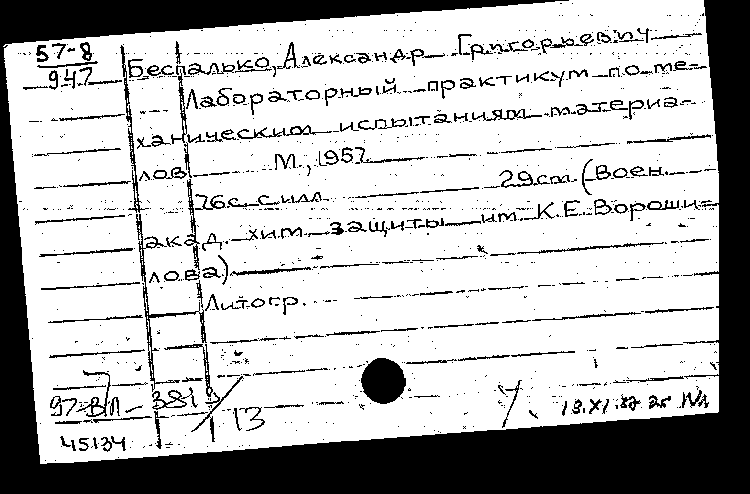 57-8
947
Беспалько, Александр Григорьевич
Лабораторный практикум по ме-
ханическим испытаниям материа-
лов М., 1957
76с. с илл 29см (Воен.
акад. хим. защиты им. К.Е. Вороши-
лова)
Литогр.
97-ВЛ-3818
13
45134